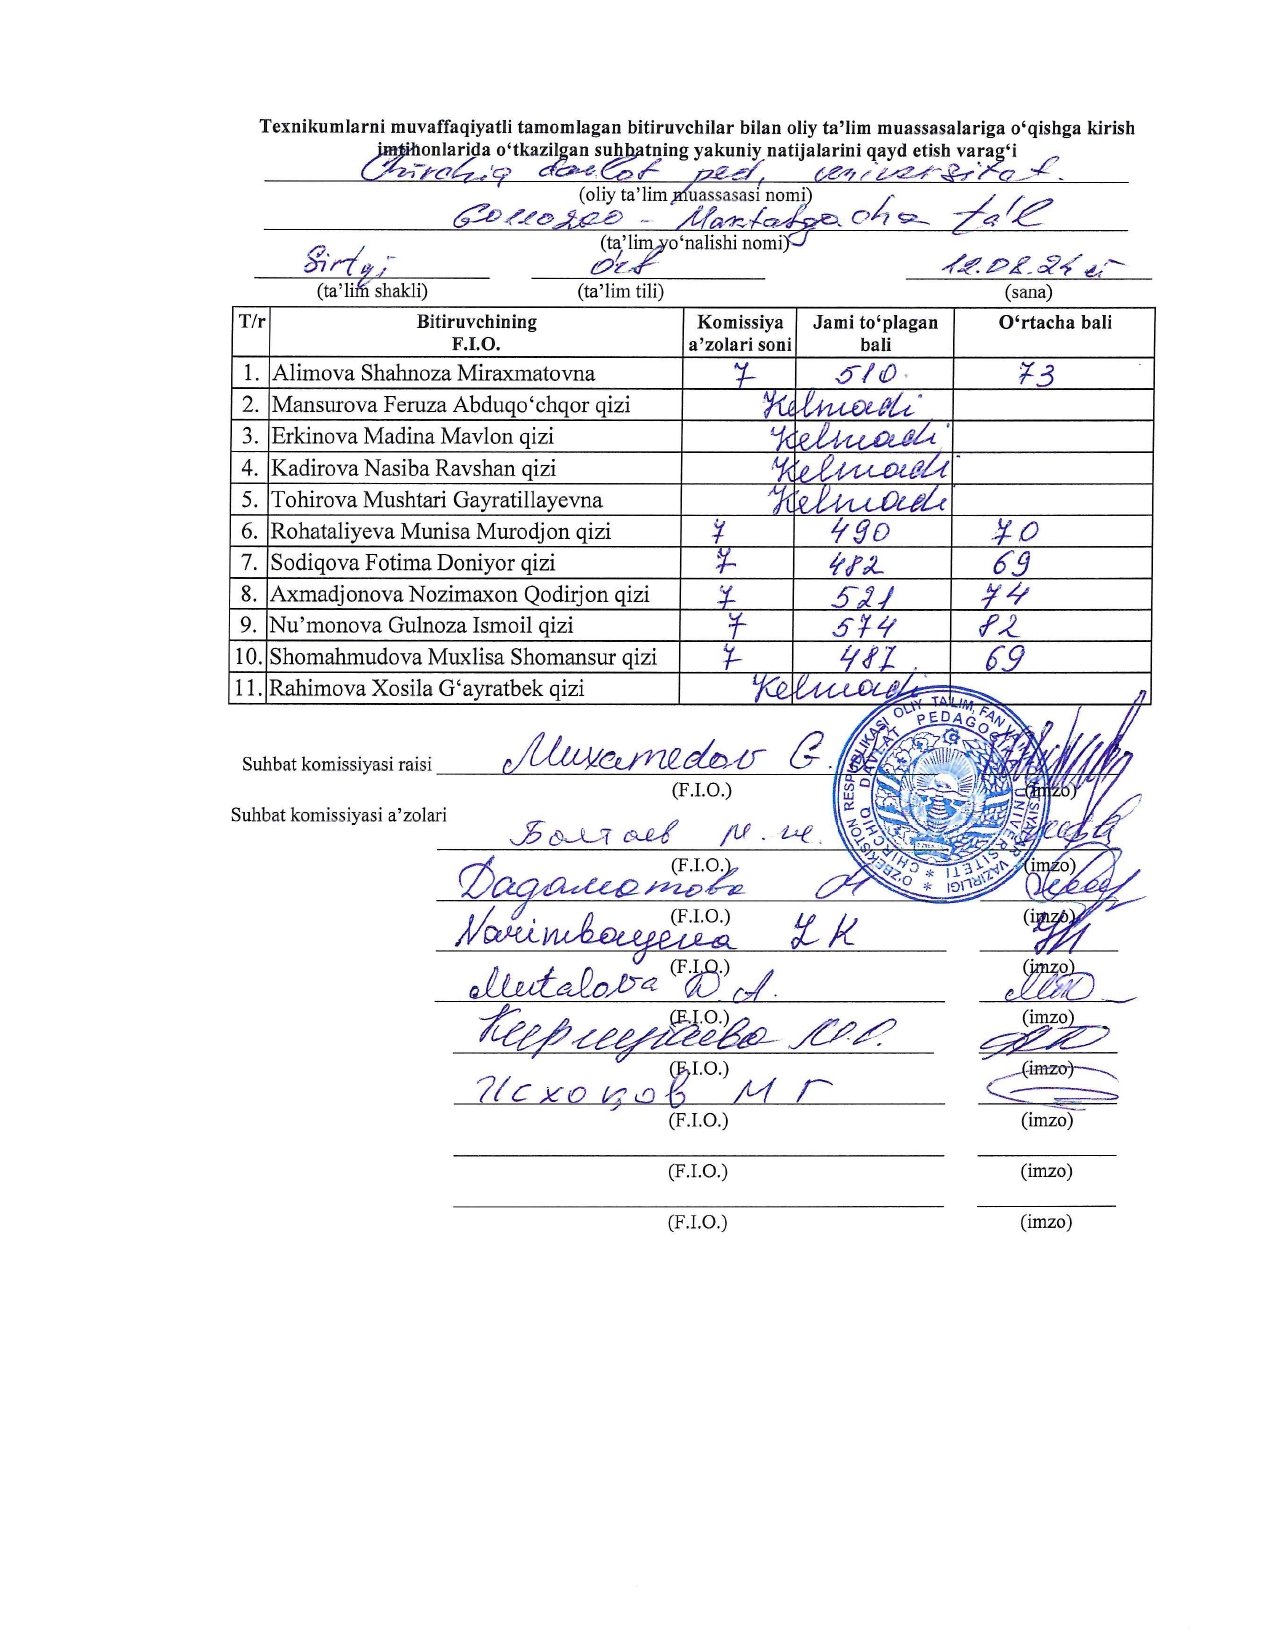 Texnikumlarni muvaffaqiyatli tamomlagan bitiruvchilar bilan oliy ta’lim muassasalariga o‘qishga kirish
imtihonlarida o‘tkazilgan suhbatning yakuniy natijalarini qayd etish varag‘i
Chirchiq davlat ped. universitet.
(oliy ta’lim muassasasi nomi)
60110200 - Maktabgacha ta'l
(ta’lim yo‘nalishi nomi)
Sirtqi o'zb 12.08.24
(ta’lim shakli) (ta’lim tili) (sana)
T/r Bitiruvchining F.I.O. Komissiya a’zolari soni Jami to‘plagan bali O‘rtacha bali
1. Alimova Shahnoza Miraxmatovna 7 510 73
2. Mansurova Feruza Abduqo‘chqor qizi Kelmadi
3. Erkinova Madina Mavlon qizi Kelmadi
4. Kadirova Nasiba Ravshan qizi Kelmadi
5. Tohirova Mushtari Gayratillayevna Kelmadi
6. Rohataliyeva Munisa Murodjon qizi 7 490 70
7. Sodiqova Fotima Doniyor qizi 7 482 69
8. Axmadjonova Nozimaxon Qodirjon qizi 7 521 74
9. Nu’monova Gulnoza Ismoil qizi 7 574 82
10. Shomahmudova Muxlisa Shomansur qizi 7 487 69
11. Rahimova Xosila G‘ayratbek qizi Kelmadi
Suhbat komissiyasi raisi Мухамедов С.
(F.I.O.) (imzo)
Suhbat komissiyasi a’zolari
Болтаев М.
(F.I.O.) (imzo)
Дадаматова
(F.I.O.) (imzo)
Narimbayeva L K
(F.I.O.) (imzo)
Mutalova D A.
(F.I.O.) (imzo)
(F.I.O.) (imzo)
Исхоқов М Г
(F.I.O.) (imzo)
(F.I.O.) (imzo)
(F.I.O.) (imzo)
O‘ZBEKISTON RESPUBLIKASI OLIY TA’LIM, FAN VA INNOVATSIYALAR VAZIRLIGI
CHIRCHIQ DAVLAT PEDAGOGIKA UNIVERSITETI